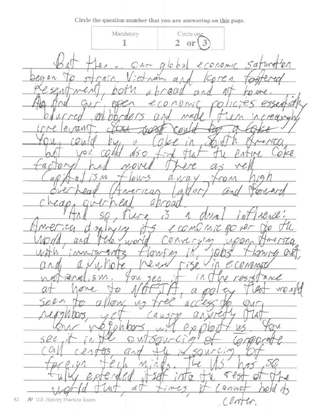 Circle the question number that you are answering on this page.
Mandatory Circle one
1 2 or 3
But then... our global economic saturation
began to strain. Vietnam and Korea fostered
resentment, both abroad and at home.
And our open economic policies essentially
blurred borders and made them increasingly
irrelevant.
You could buy a Coke in South America,
but you could also find that the entire Coke
factory had moved there as well.
Capitalism flows away from high
overhead (American labor) and toward
cheap overhead abroad.
And so, there is a dual influence:
America displaying its economic power to the
world, and the world converging upon America,
with immigrants flowing in, jobs flowing out,
and a whole new rise in economic
nationalism. You see it in the resistance
at home to NAFTA, a policy that would
seem to allow us free access to our
neighbors, yet causes anxiety that
our neighbors will exploit us. You
see it in the outsourcing of corporate
call centers and the insourcing of
foreign tech minds. The US has so
fully extended itself into the rest of the
world that, at times, it cannot hold its
center.
AP U.S. History Practice Exam